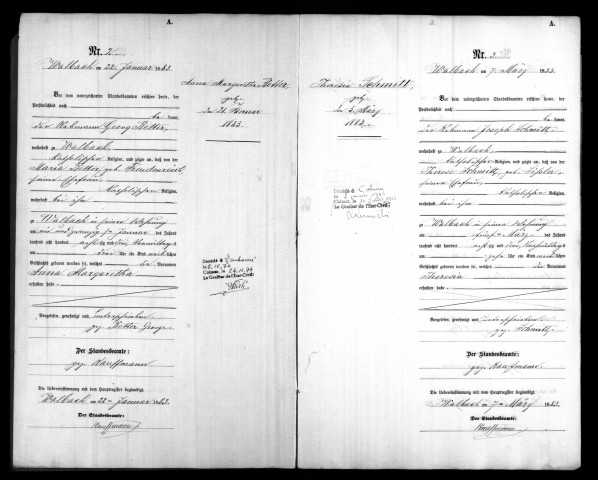 A.
Nr. 2
Walbach am 22ten Januar 1883.
Vor dem unterzeichneten Standesbeamten erschien heute, der
Persönlichkeit nach
kannt,
der Rebmann Georg Better
wohnhaft zu Walbach
katholischer Religion, und zeigte an, daß von der
Maria Better, geb. Freudenreich
seiner Ehefrau
katholischer Religion,
wohnhaft bei ihm
zu Walbach in seiner Wohnung
am ein und zwanzigsten Januar des Jahres
tausend acht hundert achtzig und drei Vormittags
um drei Uhr ein Kind weiblichen
Geschlechts geboren worden sei, welches die Vornamen
Anna Margaretha
erhalten habe
Vorgelesen, genehmigt und unterschrieben
gez. Better George
Der Standesbeamte:
gez. Kauffmann
Die Uebereinstimmung mit dem Hauptregister beglaubigt
Walbach am 22ten Januar 1883.
Der Standesbeamte:
Kauffmann
Anna Margaretha Better,
geb.
den 21 Januar
1883.
Décédé à
le 5.10.74
Colmar, le 24.10.74
Le Greffier de l'Etat-Civil:
Thérèse Schmitt,
geb.
den 5 März
1883.
Décédé à Colmar
Colmar, le
Le Greffier de l'Etat-Civil:
A.
Nr. 3
Walbach am 7. März 1883.
Vor dem unterzeichneten Standesbeamten erschien heute, der
Persönlichkeit nach
kannt,
der Rebmann Joseph Schmitt
wohnhaft zu Walbach
katholischer Religion, und zeigte an, daß von der
Therese Schmitt, geb.
seiner Ehefrau
katholischer Religion,
wohnhaft bei ihm
zu Walbach in seiner Wohnung
am fünften März des Jahres
tausend acht hundert achtzig und drei Nachmittags
um zehn Uhr ein Kind weiblichen
Geschlechts geboren worden sei, welches den Vornamen
Theresia
erhalten habe
Vorgelesen, genehmigt und unterschrieben
gez. Schmitt
Der Standesbeamte:
gez. Kaufmann
Die Uebereinstimmung mit dem Hauptregister beglaubigt
Walbach am 7ten März 1883.
Der Standesbeamte:
Kauffmann